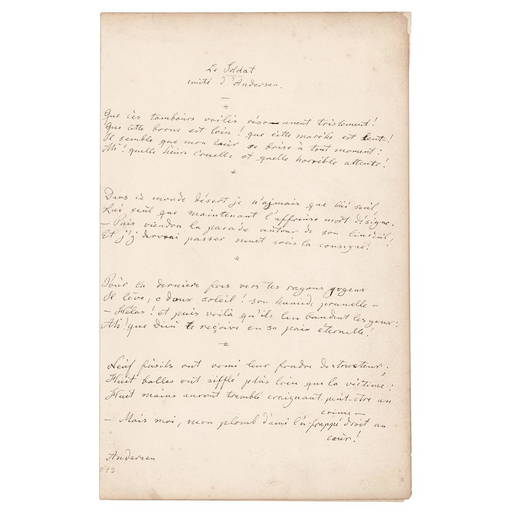 Le Soldat
imité d'Andersen.
Que ces tambours voilés résonnent tristement!
Que cette borne est loin! que cette marche est lente!
Il semble que mon cœur se brise à tout moment:
Ah! quelle heure cruelle et quelle horrible attente!
Dans ce monde désert je n'aimais que lui seul
Lui seul que maintenant l'affreuse mort désigne.
— Puis viendra la parade autour de son linceul,
Et j'y devrai passer muet sous la consigne!
Pour la dernière fois vers tes rayons joyeux
Il lève, ô doux soleil! son humide prunelle —
— Hélas! et puis voilà qu'ils lui bandent les yeux:
Ah! que Dieu te reçoive en sa paix éternelle!
Neuf fusils ont vomi leur foudre destructeur:
Huit balles ont sifflé plus loin que la victime:
Huit mains auront tremblé craignant peut-être un
crime —
— Mais moi, mon plomb d'ami l'a frappé droit au
cœur!
Andersen